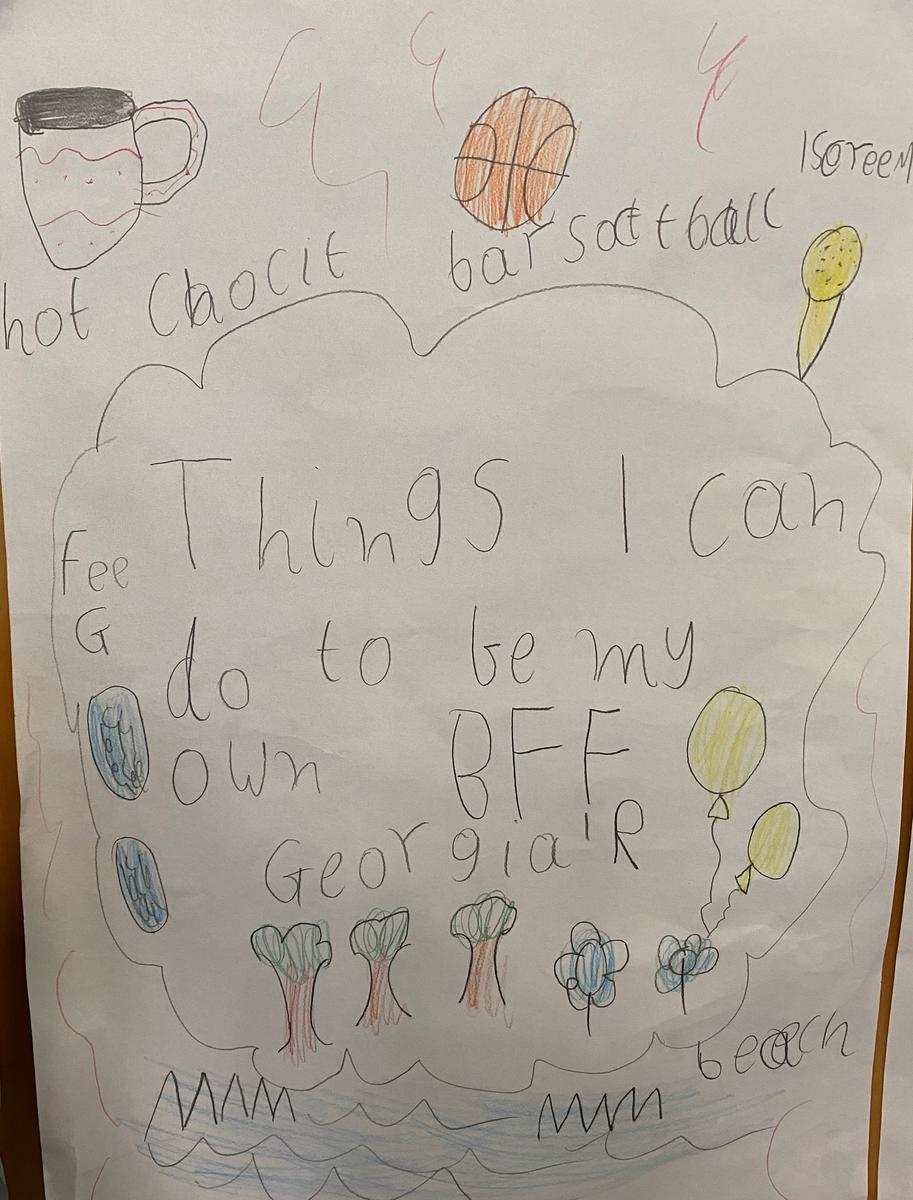 Isoreem
barsattball
hot Chocit
Things I can
Fee
G
do to be my
own BFF
Georgia'R
beach